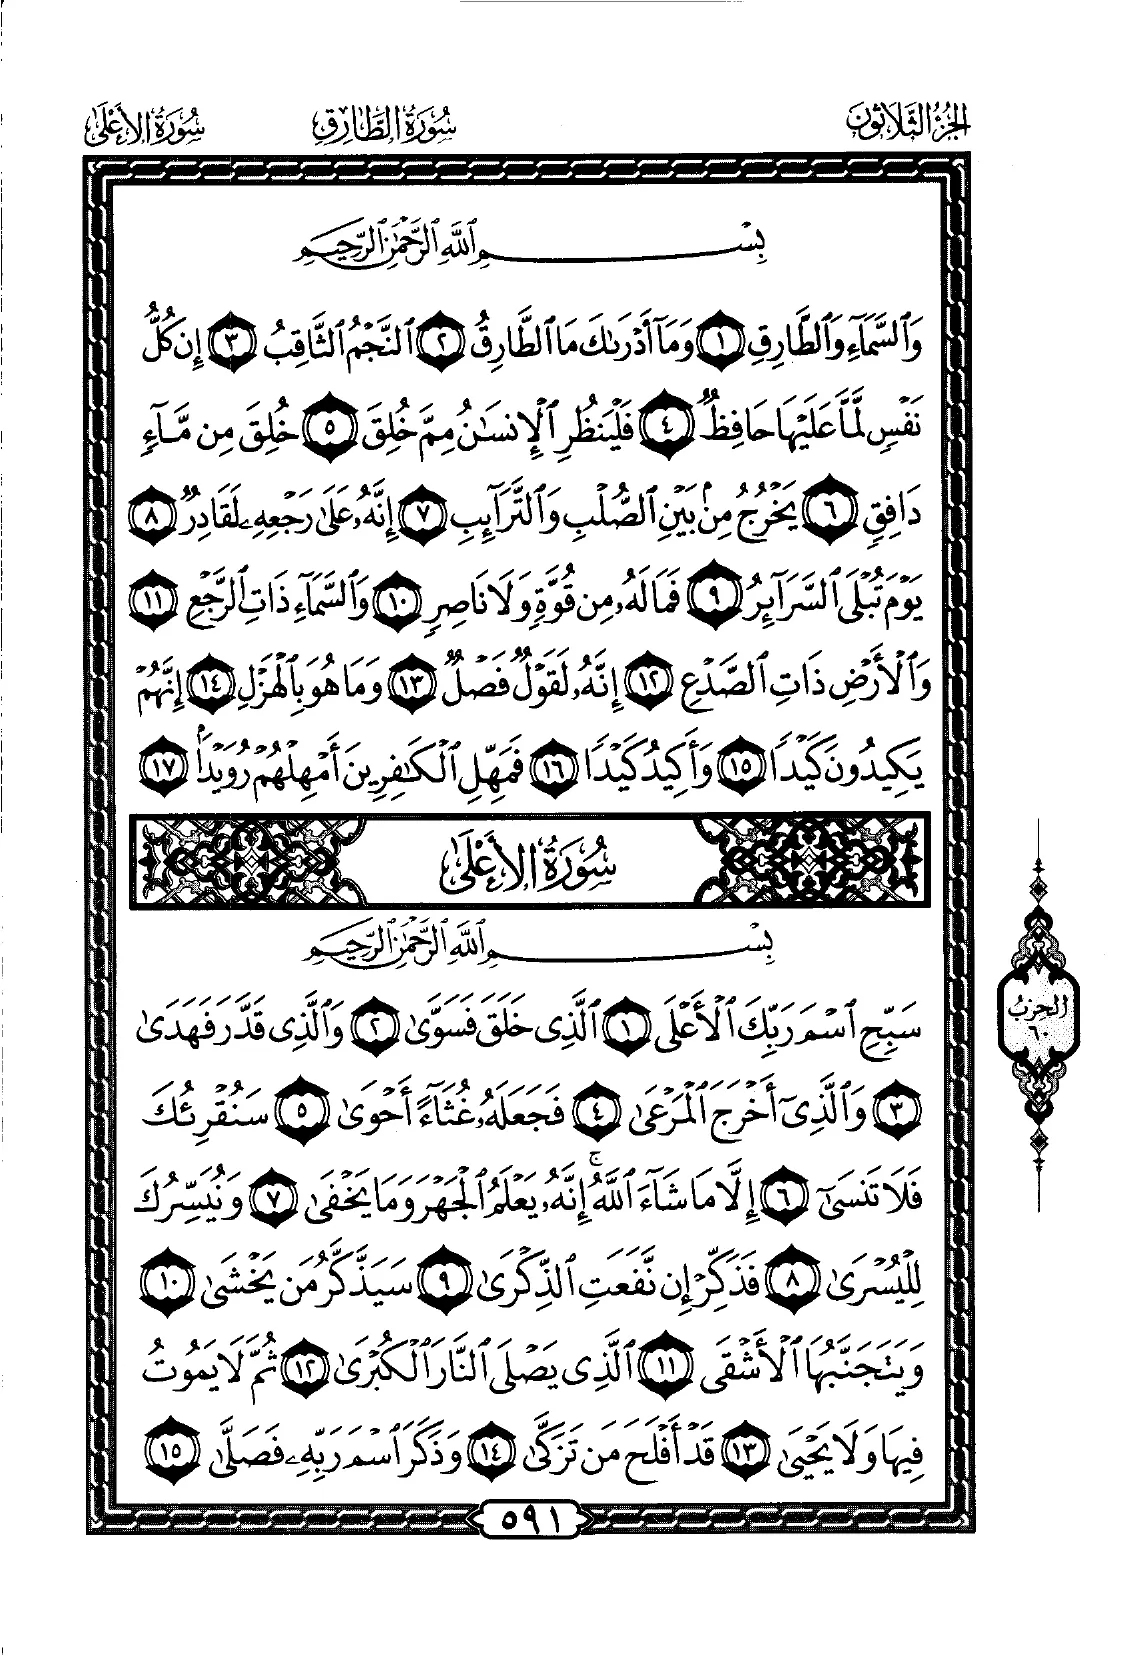 الجزء الثلاثون سورة الطارق سورة الأعلى
بِسْمِ ٱللَّهِ ٱلرَّحْمَٰنِ ٱلرَّحِيمِ
وَٱلسَّمَآءِ وَٱلطَّارِقِ ١ وَمَآ أَدْرَىٰكَ مَا ٱلطَّارِقُ ٢ ٱلنَّجْمُ ٱلثَّاقِبُ ٣ إِن كُلُّ
نَفْسٍ لَّمَّا عَلَيْهَا حَافِظٌ ٤ فَلْيَنظُرِ ٱلْإِنسَٰنُ مِمَّ خُلِقَ ٥ خُلِقَ مِن مَّآءٍ
دَافِقٍ ٦ يَخْرُجُ مِنۢ بَيْنِ ٱلصُّلْبِ وَٱلتَّرَآئِبِ ٧ إِنَّهُۥ عَلَىٰ رَجْعِهِۦ لَقَادِرٌ ٨
يَوْمَ تُبْلَى ٱلسَّرَآئِرُ ٩ فَمَا لَهُۥ مِن قُوَّةٍ وَلَا نَاصِرٍ ١٠ وَٱلسَّمَآءِ ذَاتِ ٱلرَّجْعِ ١١
وَٱلْأَرْضِ ذَاتِ ٱلصَّدْعِ ١٢ إِنَّهُۥ لَقَوْلٌ فَصْلٌ ١٣ وَمَا هُوَ بِٱلْهَزْلِ ١٤ إِنَّهُمْ
يَكِيدُونَ كَيْدًا ١٥ وَأَكِيدُ كَيْدًا ١٦ فَمَهِّلِ ٱلْكَٰفِرِينَ أَمْهِلْهُمْ رُوَيْدًۢا ١٧
سُورَةُ الأَعْلَىٰ
بِسْمِ ٱللَّهِ ٱلرَّحْمَٰنِ ٱلرَّحِيمِ
سَبِّحِ ٱسْمَ رَبِّكَ ٱلْأَعْلَى ١ ٱلَّذِى خَلَقَ فَسَوَّىٰ ٢ وَٱلَّذِى قَدَّرَ فَهَدَىٰ
٣ وَٱلَّذِىٓ أَخْرَجَ ٱلْمَرْعَىٰ ٤ فَجَعَلَهُۥ غُثَآءً أَحْوَىٰ ٥ سَنُقْرِئُكَ
فَلَا تَنسَىٰٓ ٦ إِلَّا مَا شَآءَ ٱللَّهُ ۚ إِنَّهُۥ يَعْلَمُ ٱلْجَهْرَ وَمَا يَخْفَىٰ ٧ وَنُيَسِّرُكَ
لِلْيُسْرَىٰ ٨ فَذَكِّرْ إِن نَّفَعَتِ ٱلذِّكْرَىٰ ٩ سَيَذَّكَّرُ مَن يَخْشَىٰ ١٠
وَيَتَجَنَّبُهَا ٱلْأَشْقَى ١١ ٱلَّذِى يَصْلَى ٱلنَّارَ ٱلْكُبْرَىٰ ١٢ ثُمَّ لَا يَمُوتُ
فِيهَا وَلَا يَحْيَىٰ ١٣ قَدْ أَفْلَحَ مَن تَزَكَّىٰ ١٤ وَذَكَرَ ٱسْمَ رَبِّهِۦ فَصَلَّىٰ ١٥
الحزب
٦٠
٥٩١